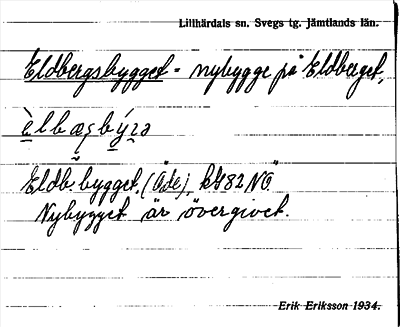 Lillhärdals sn. Svegs tg. Jämtlands län.
Eldbergsbygget - nybygge på Eldberget,
Eldb. bygget, (Öde), NO.
Nybygget är övergivet.
Erik Eriksson 1934.